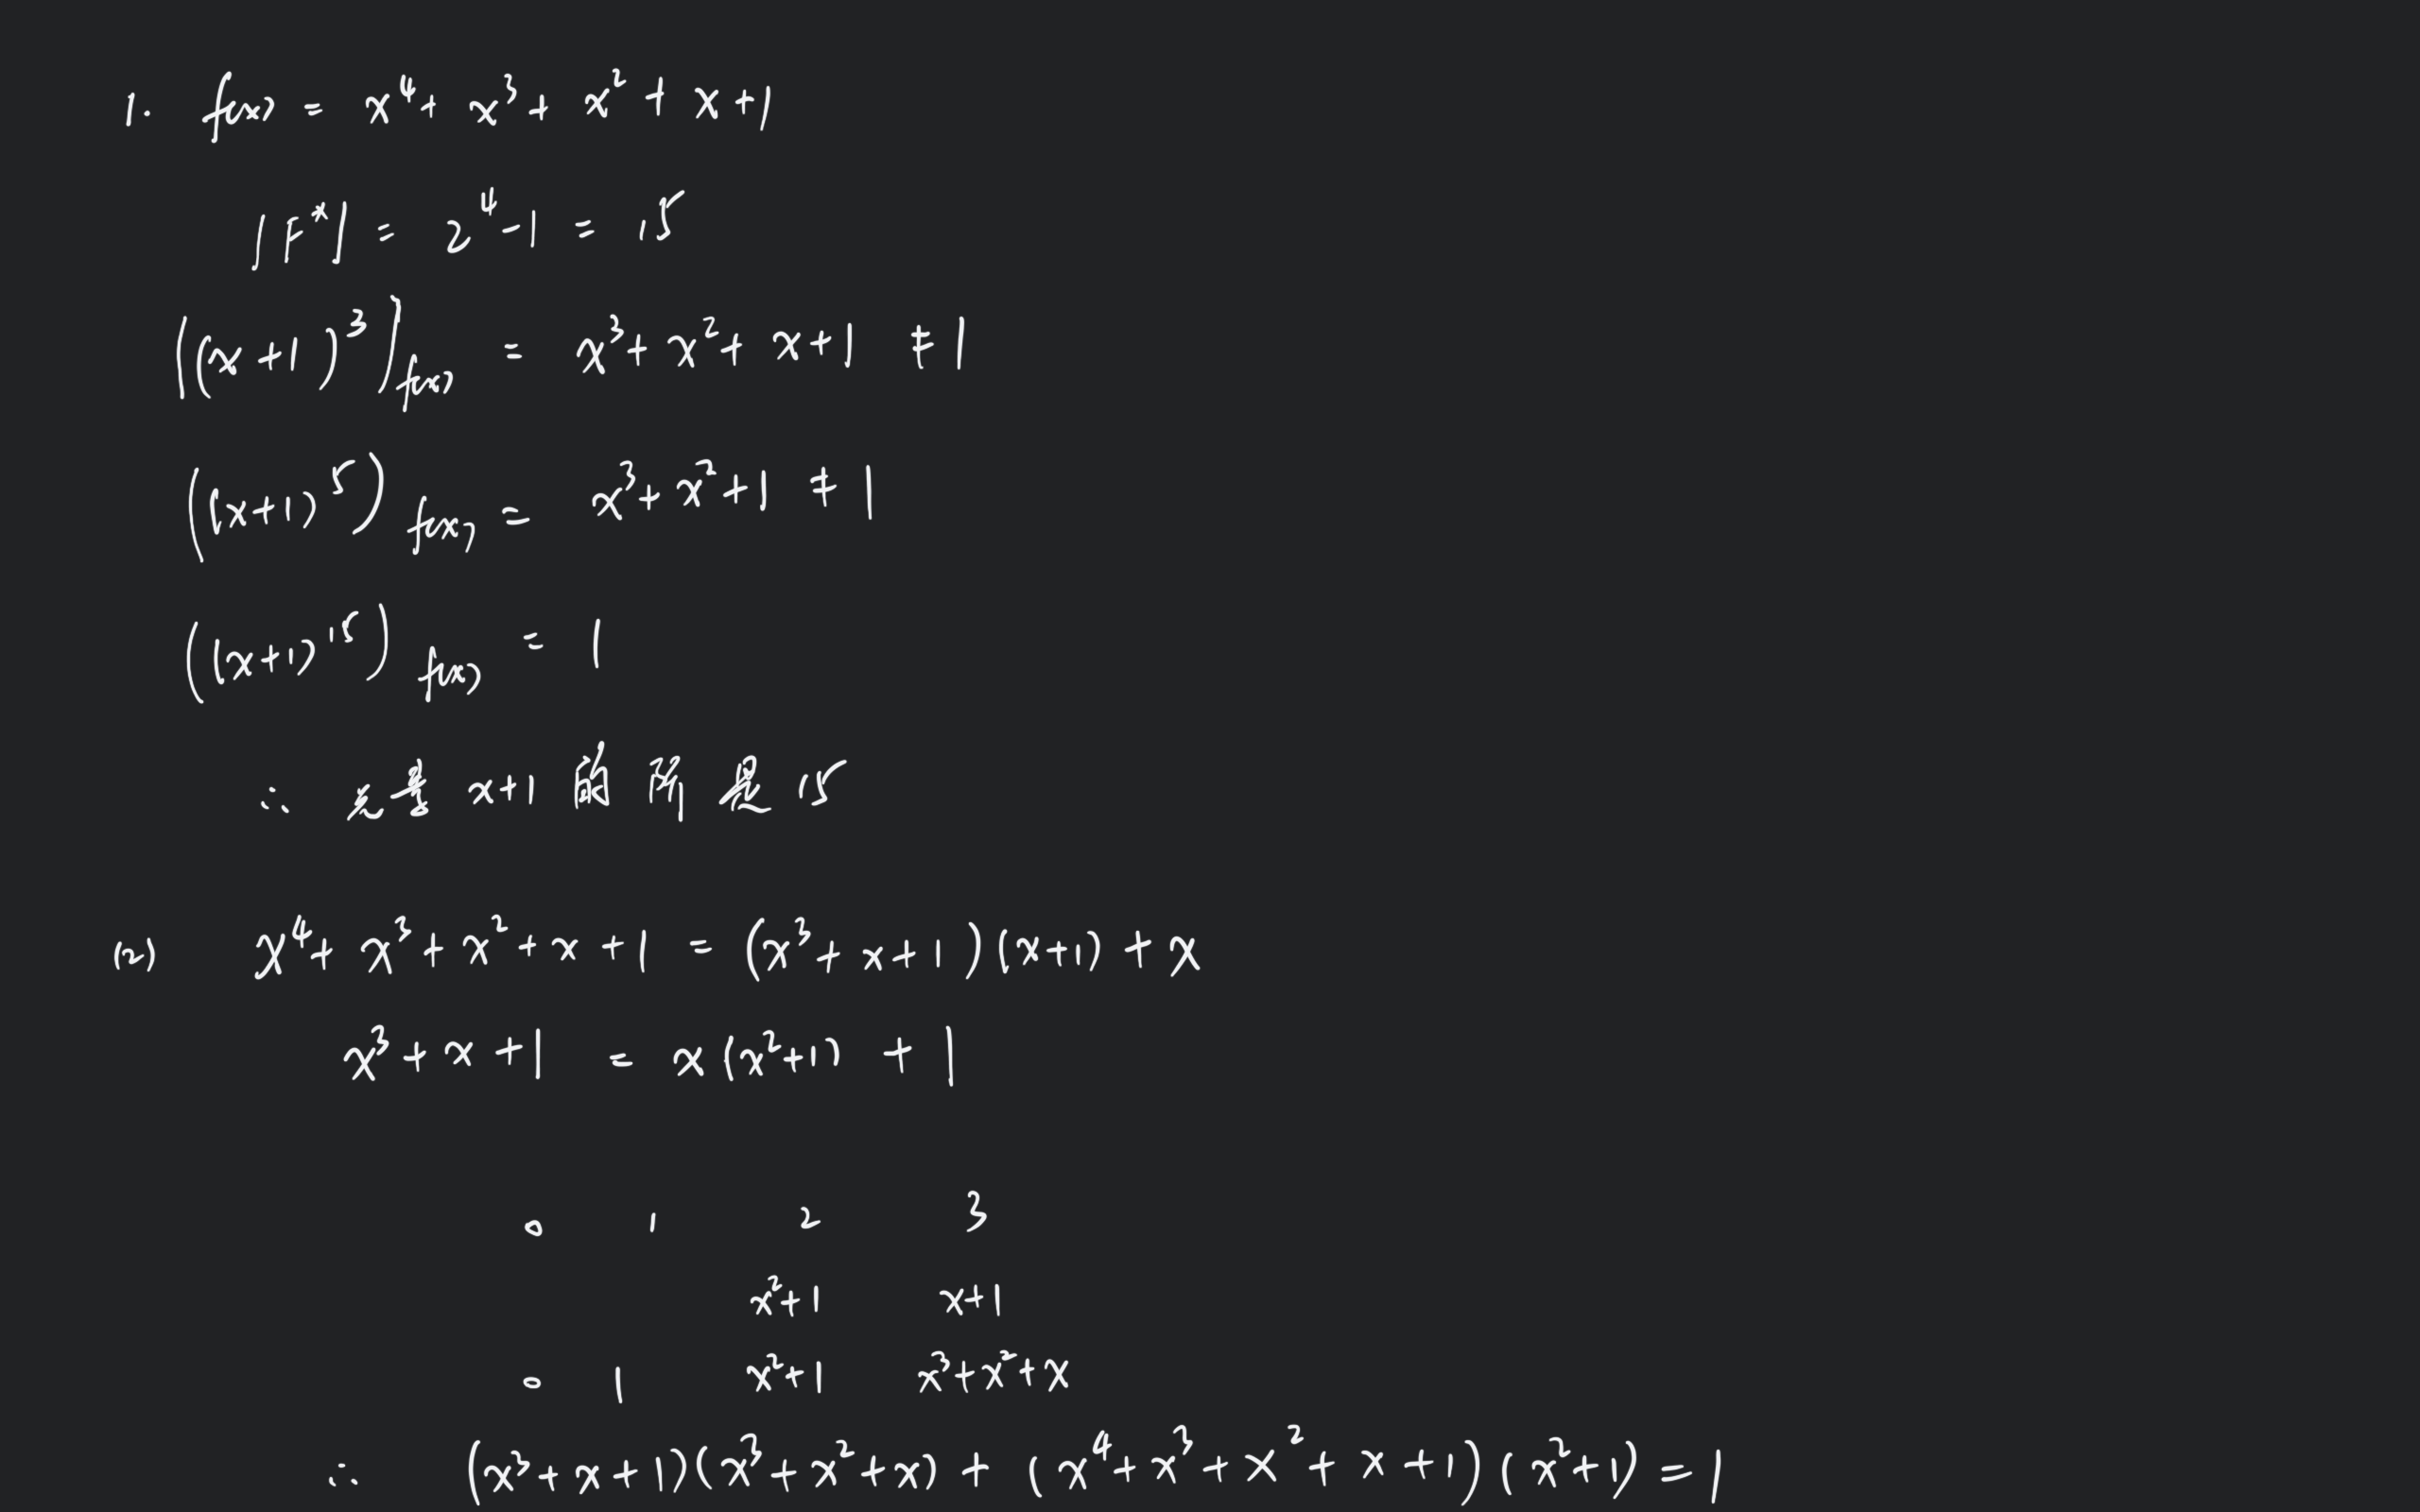 1. f(x) = x⁴ + x³ + x² + x + 1
|F*| = 2⁴ - 1 = 15
((x+1)³)_f(x) = x³ + x² + x + 1 ≠ 1
((x+1)⁵)_f(x) = x³ + x² + 1 ≠ 1
((x+1)¹⁵)_f(x) = 1
∴ 元素 x+1 的阶是 15
(2) x⁴ + x³ + x² + x + 1 = (x³ + x + 1)(x+1) + x
x³ + x + 1 = x(x²+1) + 1
0 1 2 3
x²+1 x+1
0 1 x²+1 x³+x²+x
∴ (x³ + x + 1)(x³ + x² + x) + (x⁴ + x³ + x² + x + 1)(x²+1) = 1